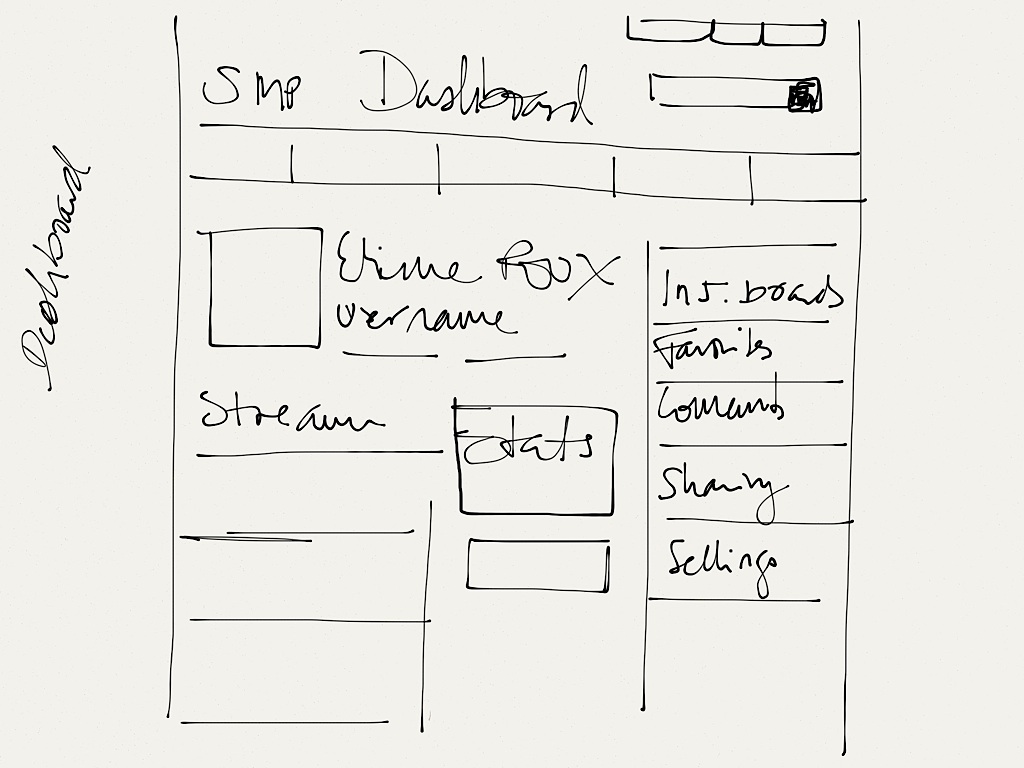 Dashboard
SMP Dashboard
Roux
username
Stream
Stats
Ins. boards
Favorites
Comments
Sharing
Settings